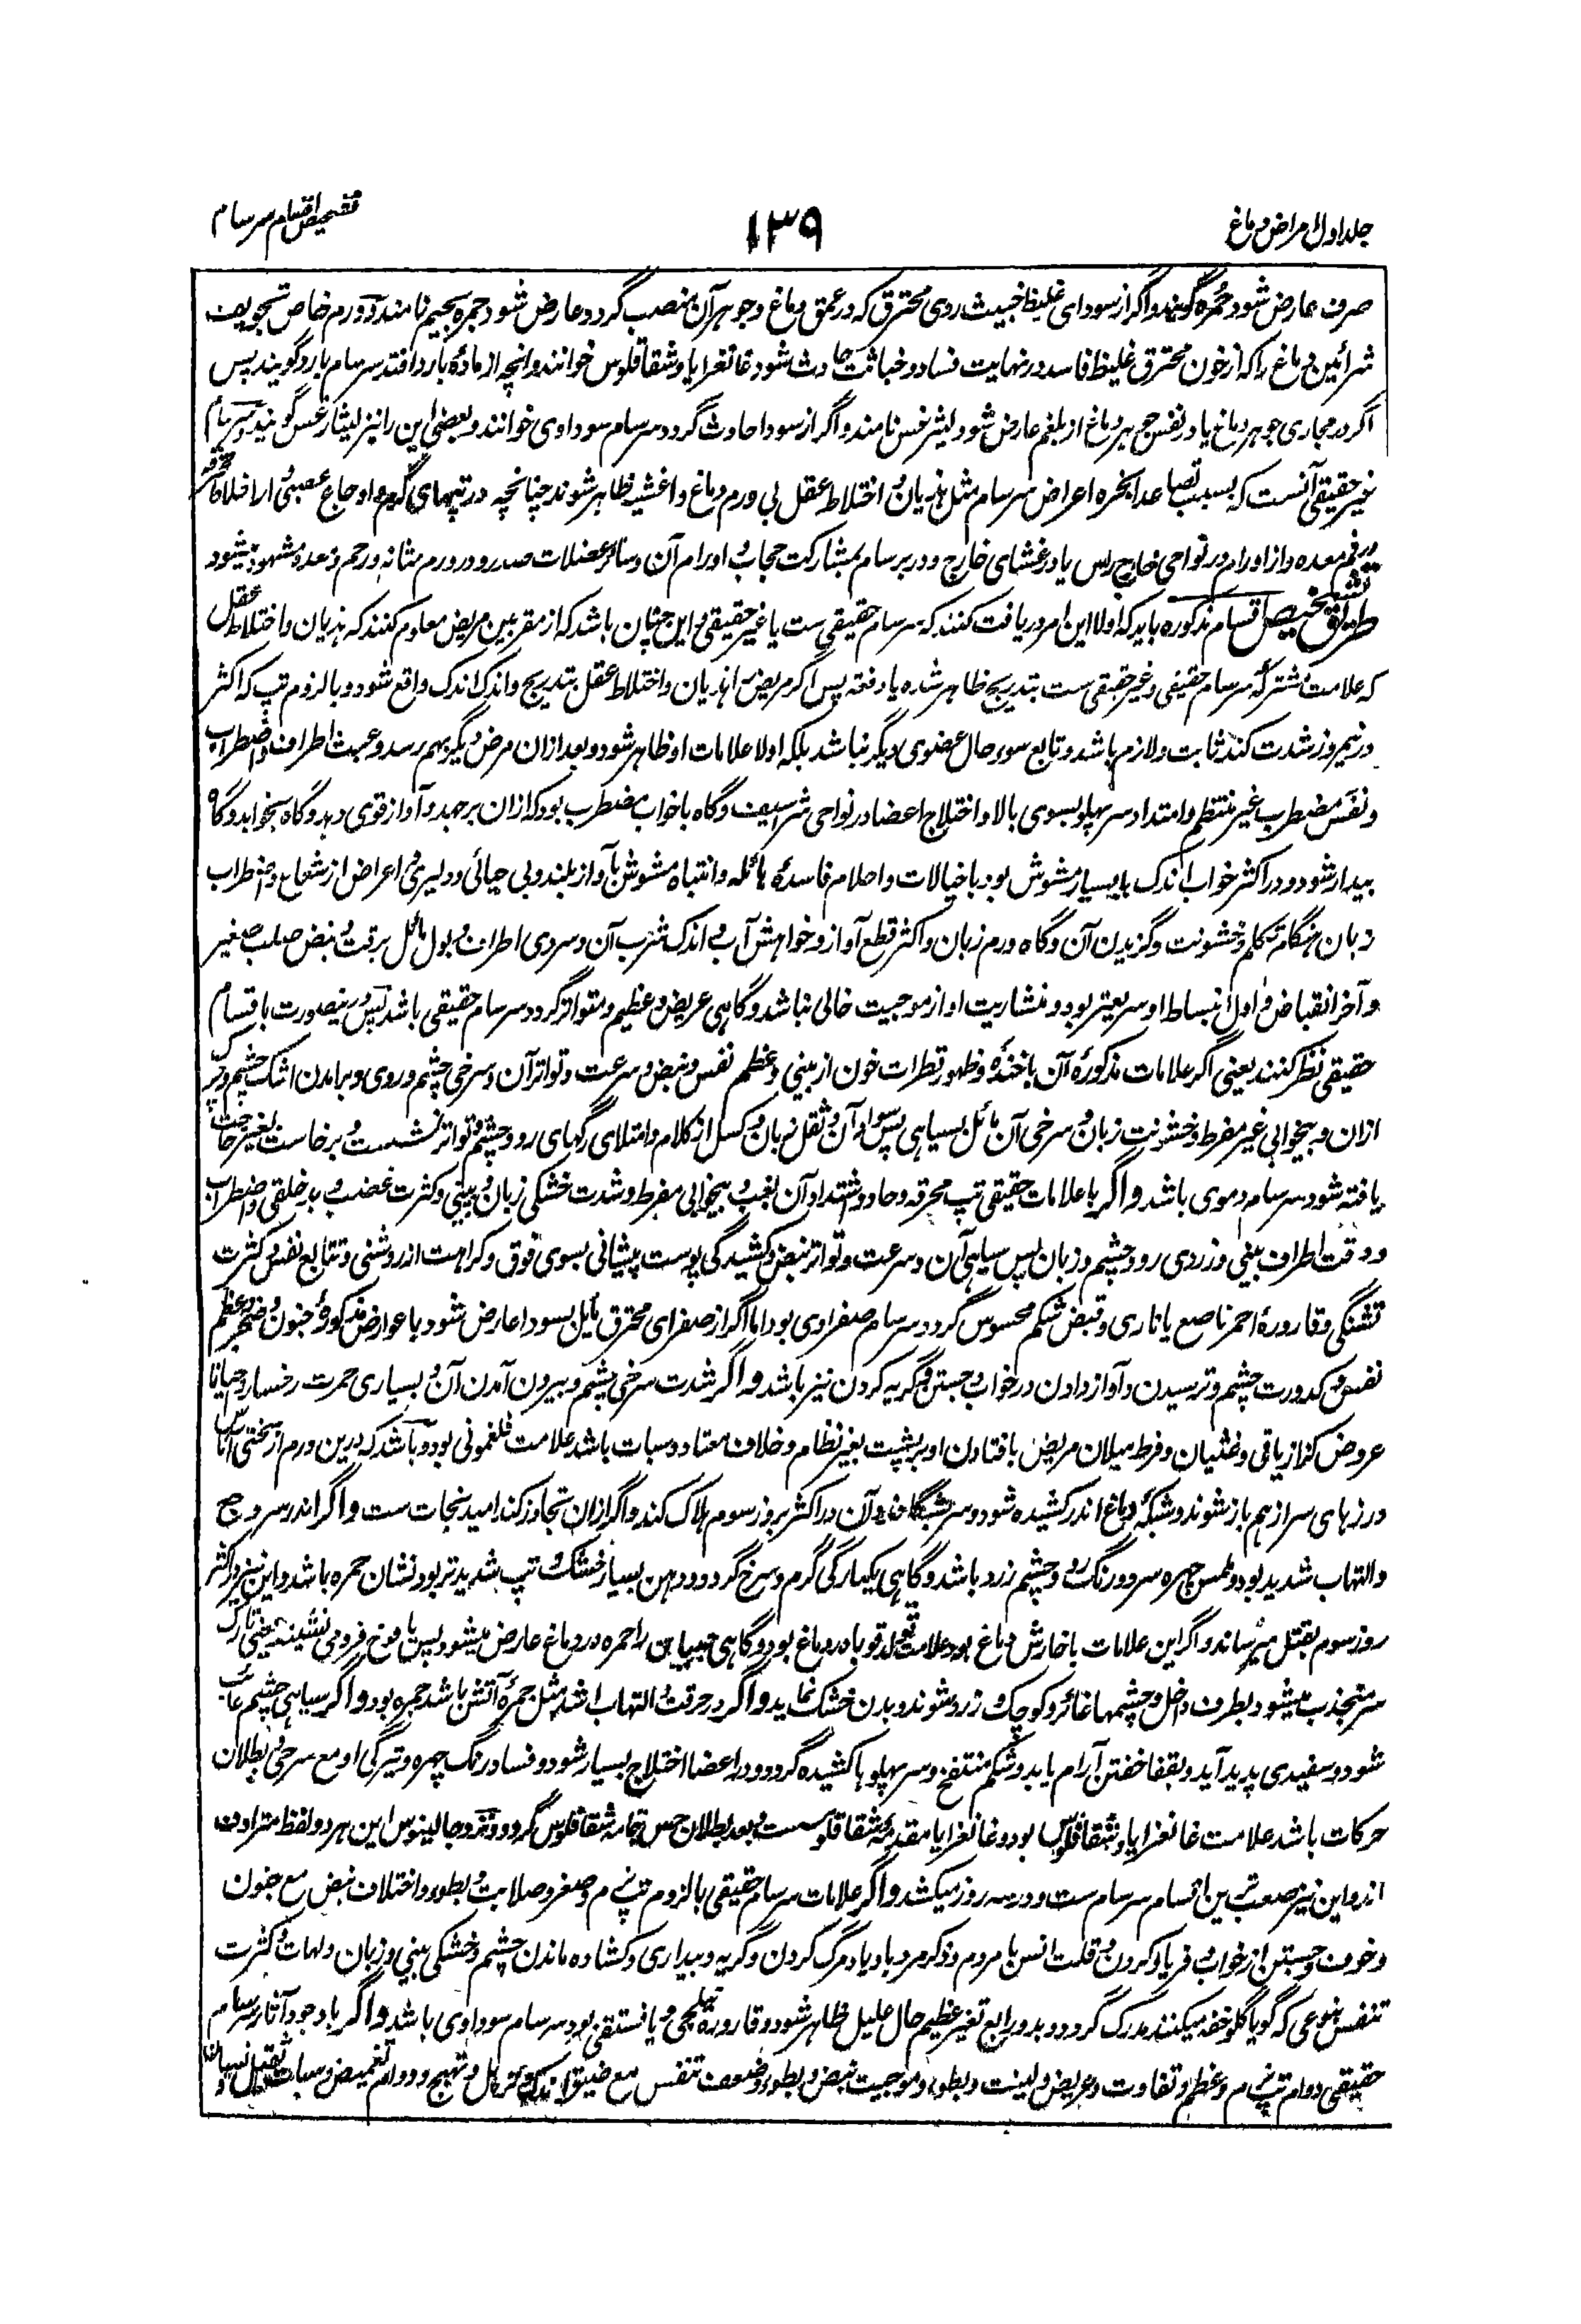 جلد اول امراض دماغ
۱۳۹
تشخیص اقسام سرسام
صرف عارض شود حمره گویند و اگر از سودای غلیظ خبیث ردی محترق که در عمق دماغ و جوهر آن منصب گردد عارض شود جمره بجیم نامند و ورم خاص تجویف
شرائین دماغ را که از خون محترق غلیظ فاسد در نهایت فساد و خباثت حادث شود غانغرایا و شقاقلوس خوانند و انچه از ماده بارد افتد سرسام بارد گویند پس
اگر در مجاری جوهر دماغ یا در نفس جوهر دماغ از بلغم عارض شود لیثرغس نامند و اگر از سودا حادث گردد سرسام سوداوی خوانند و بعضی این را نیز لیثارغس گویند و سرسام
غیر حقیقی آنست که بسبب تصاعد ابخره اعراض سرسام مثل هذیان و اختلاط عقل بی ورم دماغ و اغشیه ظاهر شوند چنانچه در تپهای گرم و اوجاع عصبی و از اخلاط محرقه
در فم معده و از اورام در نواحی خارج راس یا در غشای خارج و در برسام بمشارکت حجاب و اورام آن و سائر عضلات صدر و در ورم مثانه و رحم و معده مشهود میشود
طریق تشخیص اقسام مذکوره باید که اولا این امر دریافت کنند که سرسام حقیقی ست یا غیر حقیقی و این چنان باشد که از مقربین مریض معلوم کنند که هذیان و اختلاط عقل
که علامت مشترکه سرسام حقیقی و غیر حقیقی ست بتدریج ظاهر شده یا دفعة پس اگر مریض را هذیان و اختلاط عقل بتدریج و اندک اندک واقع شود و با لزوم تپ که اکثر
در نیمروز شدت کند ثابت و لازم باشد و تابع سوء حال عضوی دیگر نباشد بلکه اولا علامات او ظاهر شود و بعد ازان مرض دیگر بهم رسد و عبث اطراف و اضطراب
و نفس مضطرب غیر منتظم و امتداد سر پهلو بسوی بالا و اختلاج اعضا در نواحی شراسیف و گاه با خواب مضطرب بود که ازان برجهد و آواز قوی دهد و گاه بخوابد و گاه
بیدار شود و در اکثر خواب اندک یا بسیار مشوش بود با خیالات و احلام فاسده هائله و انتباه مشوش با آواز بلند و بی حیائی و دلیری و اعراض از شعاع و اضطراب
زبان هنگام تکلم و خشونت و گزیدن آن و گاه ورم زبان و اکثر قطع آواز و خواهش آب و اندک شرب آن و سردی اطراف و بول مائل برقت و نبض صلب صغیر
و آخر انقباض و اول انبساط او سریعتر بود و منشاریت او از موجیت خالی نباشد و گاهی عریض و عظیم و متواتر گردد سرسام حقیقی باشد پس درینصورت باقسام
حقیقی نظر کنند یعنی اگر علامات مذکوره آن با خنده و ظهور قطرات خون از بینی و عظم نفس و نبض و سرعت و تواتر آن و سرخی چشم و روی و برامدن اشک چشم و چرک
ازان و بیخوابی غیر مفرط و خشونت زبان و سرخی آن مائل بسیاهی پس سواد آن و ثقل زبان و کسل از کلام و امتلای رگهای رو و چشم و تواتر نشست و برخاست بغیر حاجت
یافته شود سرسام دموی باشد و اگر با علامات حقیقی تپ محرقه و حاد و اشتداد آن بغب و بیخوابی مفرط و شدت خشکی زبان و بینی و کثرت غضب و بدخلقی و اضطراب
و دقت اطراف بینی و زردی رو و چشم و زبان پس سیاهی آن و سرعت و تواتر نبض و کشیدگی پوست پیشانی بسوی فوق و کراهت از روشنی و تتابع نفس و کثرت
تشنگی و قاروره احمر ناصع یا ناری و قبض شکم محسوس گردد سرسام صفراوی بود اما اگر از صفرای محترق مائل بسودا عارض شود با عوارض مذکوره جنون و ضجر و عظم
نفس و کدورت چشم و ترسیدن و آواز دادن در خواب و جستن و گریه کردن نیز باشد و اگر شدت سرخی چشم و بیرون آمدن آن و بسیاری حمرت رخسار و احیانا
عروض کزاز یا قی و غثیان و فرط میلان مریض بافتادن او بر پشت بغیر نظام و خلاف معتاد و سبات باشد علامت فلغمونی بود و باشد که درین ورم از سختی آماس
درزهای سر از هم باز شوند و شبکه دماغ اندر کشیده شود و سر بشگافد و آن در اکثر بروز سوم هلاک کند و اگر ازان تجاوز کند امید نجات ست و اگر اندر سر وجع
و التهاب شدید بود و ملمس چهره سرد و رنگ رو و چشم زرد باشد و گاهی یکبارگی گرم و سرخ گردد و دهن بسیار خشک و تپ شدیدتر بود نشان حمره باشد و این نیز در اکثر
روز سوم بقتل میرساند و اگر این علامات با خارش دماغ بود علامت تولد قوبا در دماغ بود و گاهی صبیان را حمره در دماغ عارض میشود پس یافوخ فرو می نشیند یعنی تارک
سر منجذب میشود بطرف داخل و چشمها غائر و کوچک و زرد شوند و بدن خشک نماید و اگر در حرقت و التهاب اشد مثل جمره آتش باشد جمره بود و اگر سیاهی چشم غائب
شود و سفیدی پدید آید و بقفا خفتن آرام یابد و شکم منتفخ و سر پهلوها کشیده گردد و در اعضا اختلاج بسیار شود و فساد رنگ چهره و تیرگی او مع سرخی و بطلان
حرکات باشد علامت غانغرایا و شقاقلوس بود و غانغرایا مقدمه شقاقلوس ست و بعد بطلان حس تمامه شقاقلوس گردد و نزد جالینوس این هر دو لفظ مترادف
اند و این نیز صعب ترین اقسام سرسام ست و در سه روز میکشد و اگر علامات سرسام حقیقی با لزوم تپ نرم و صغر و صلابت و بطوء و اختلاف نبض مع جنون
و خوف و جستن از خواب و فریاد کردن و قلت انس با مردم و ذکر مرده یا یاد مرگ کردن و گریه و بیداری و کشاده ماندن چشم و خشکی بینی و زبان و لهات و کثرت
تنفس بنوعی که گویا گلو خفه میکنند مدرک گردد و بدور رابع تغیر عظیم حال علیل ظاهر شود و قاروره نیلجی یا فستقی بود سرسام سوداوی باشد و اگر با وجود آثار سرسام
حقیقی دوام تپ نرم و عظم و تفاوت و عریض و لینت و بطوء و موجیت نبض و بطوء و ضعف تنفس مع ضیق اندک و کسل و تهبج و دوام تغمیض و سبات ثقیل